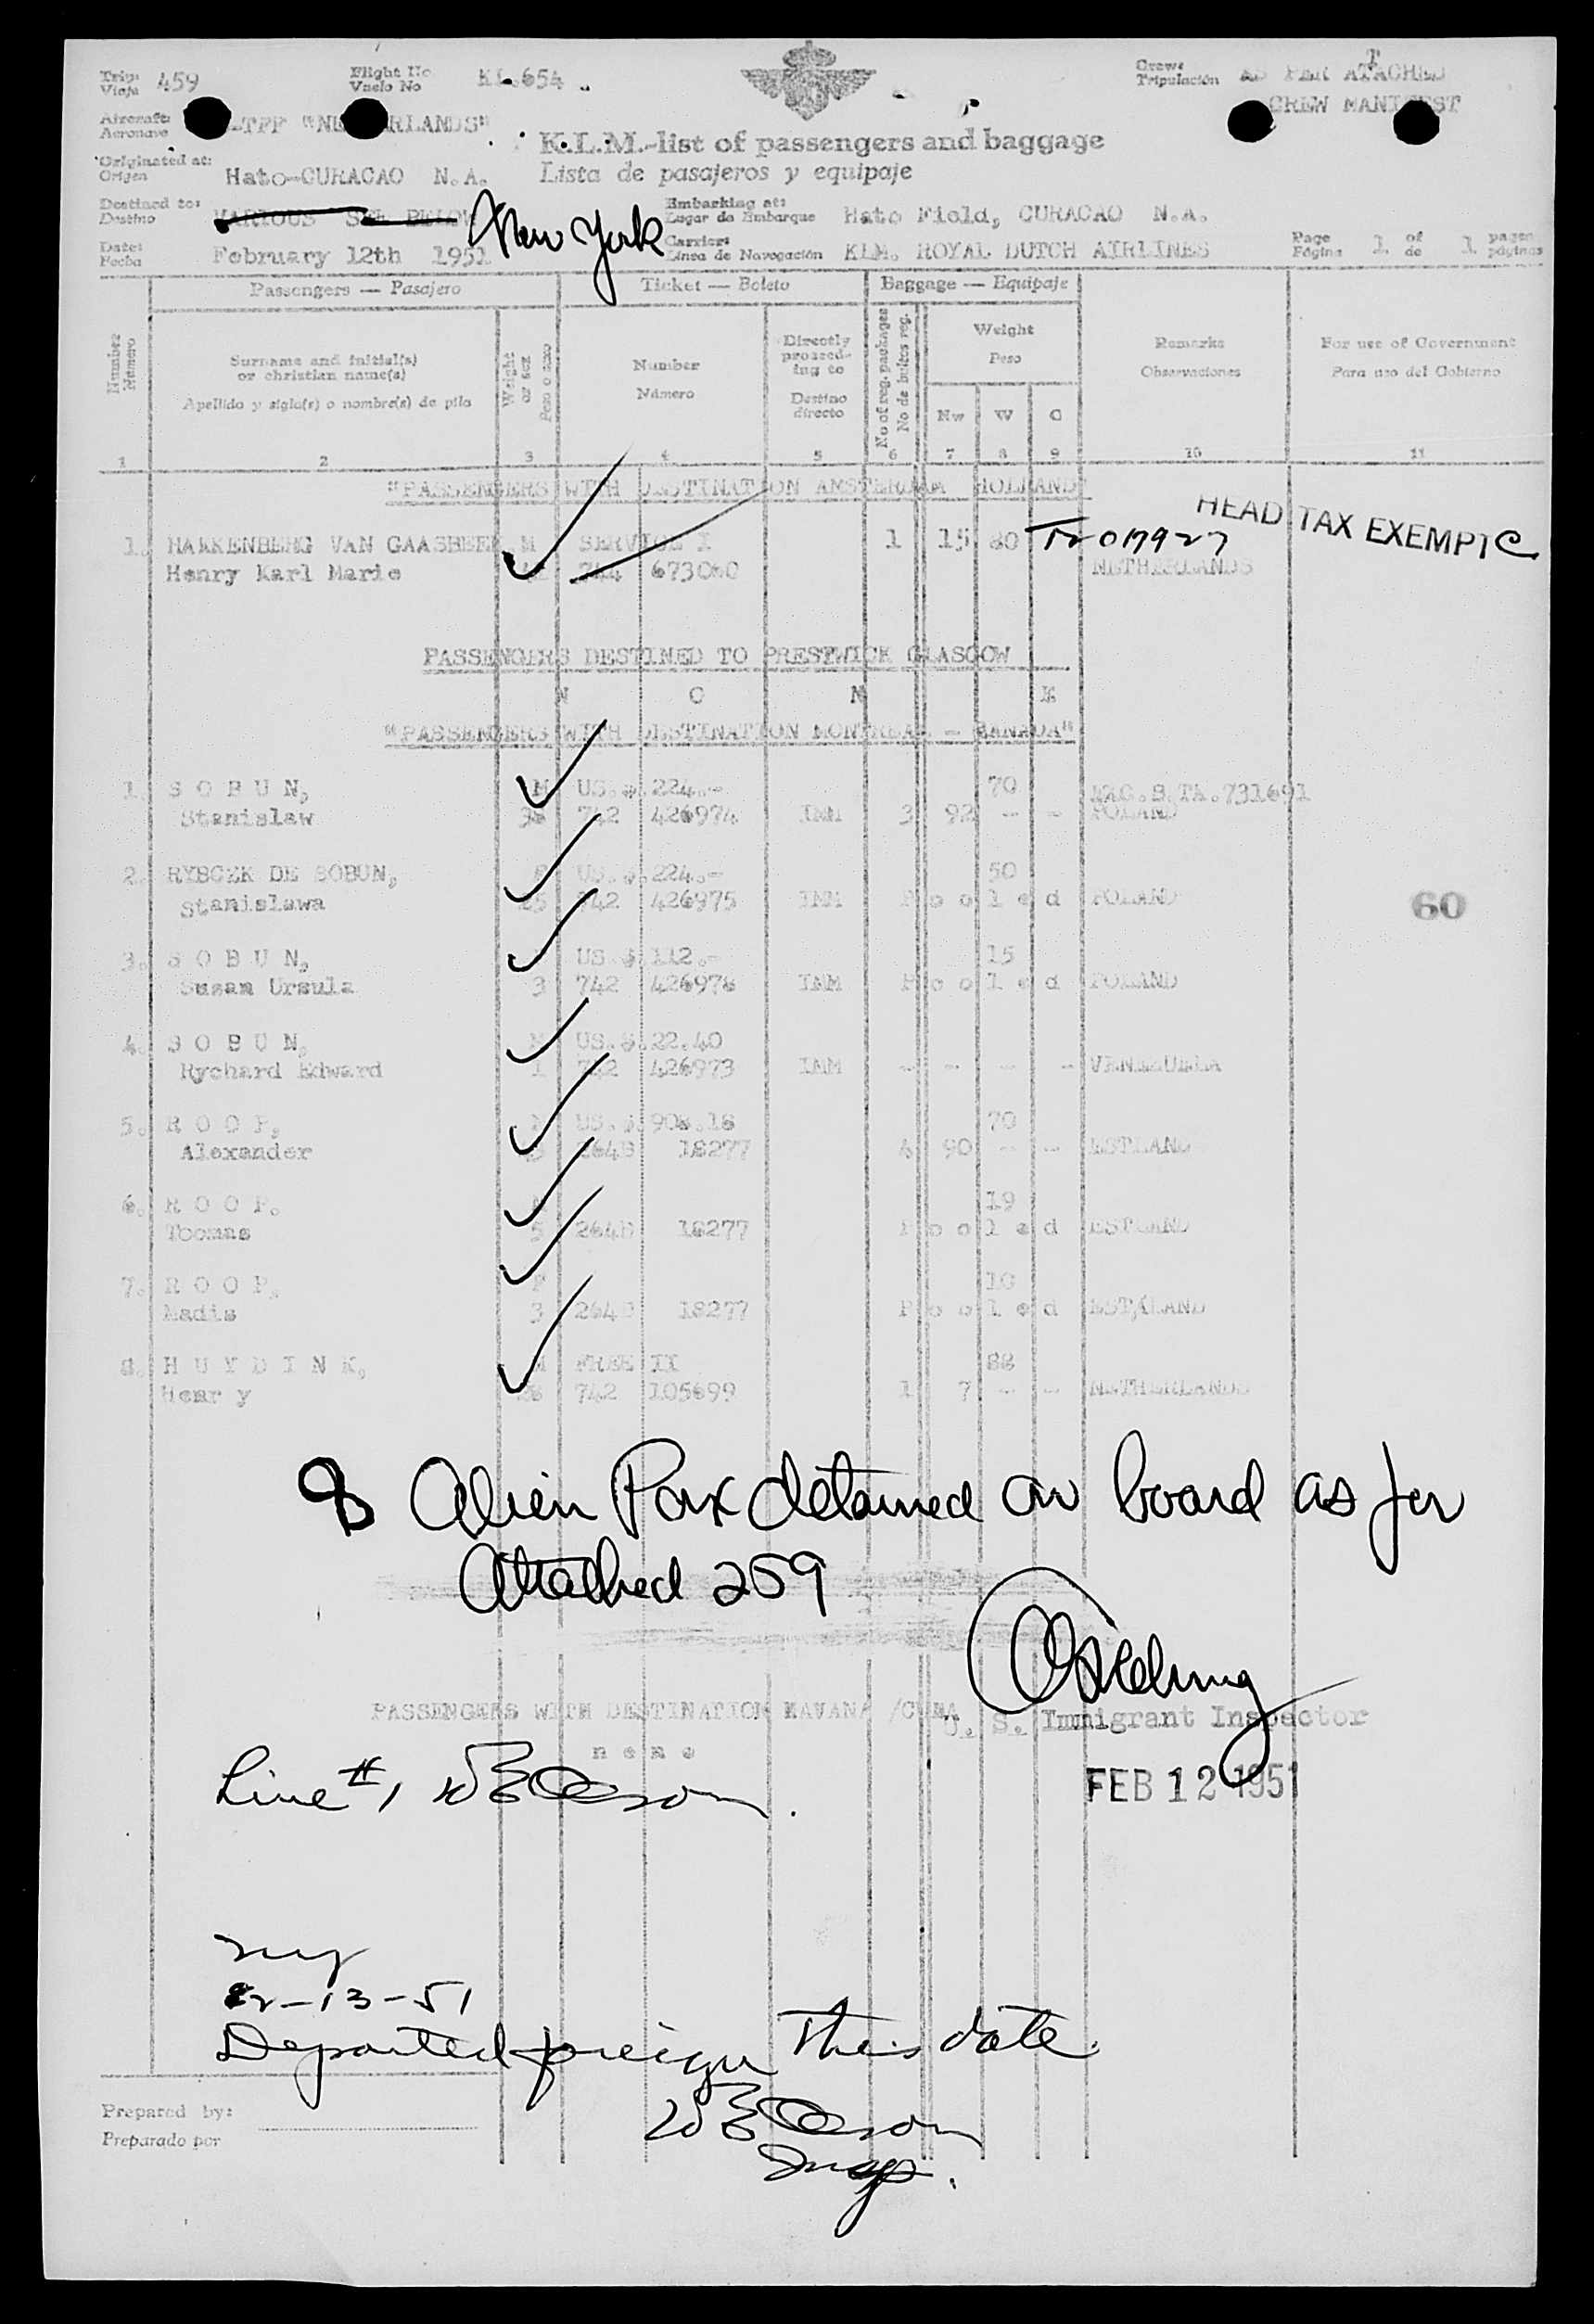 Trip: 459 Flight No KL.654 Crew: AS PER ATACHED
Viaje Vuelo No Tripulación CREW MANIFEST
Aircraft: -TFF "NE ERLANDS"
Aeronave
K.L.M.-list of passengers and baggage
Originated at:
Origen Hato-CURACAO N.A. Lista de pasajeros y equipaje
Destined to: VARIOUS SEE BELOW New York Embarking at: Hato Field, CURACAO N.A.
Destino Lugar de Embarque
Date: February 12th 1951 Carrier: KLM. ROYAL DUTCH AIRLINES Page 1 of 1 pages
Fecha Línea de Navegación Página de páginas
Passengers — Pasajero Ticket — Boleto Baggage — Equipaje
Number
Número
Surname and initial(s)
or christian name(s)
Apellido y sigla(s) o nombre(s) de pila
Weight
or sex
Peso o sexo
Number
Número
Directly
proceed-
ing to
Destino
directo
No of reg. packages
No de bultos reg.
Weight
Peso
Nw W C
Remarks
Observaciones
For use of Government
Para uso del Gobierno
1 2 3 4 5 6 7 8 9 10 11
"PASSENGERS WITH DESTINATION AMSTERDAM HOLLAND"
HEAD TAX EXEMPT C
1. HAKKENBERG VAN GAASBEEK M SERVICE I 1 15 80
Henry Karl Marie 744 673060 NETHERLANDS
PASSENGERS DESTINED TO PRESTWICK GLASGOW
N O N E
"PASSENGERS WITH DESTINATION MONTREAL - CANADA"
1. S O B U N, M US.$.224.- 70
Stanislaw 742 426974 IMM 3 92 - - POLAND
2. RYBCZK DE SOBUN, F US.$.224.- 50
Stanislawa 742 426975 IMM P o o l e d POLAND
60
3. S O B U N, US.$.112.- 15
Susan Ursula 3 742 426976 IMM P o o l e d POLAND
4. S O B U N, M US.$.22.40
Rychard Edward 1 742 426973 IMM - - - - VENEZUELA
5. R O O P, US.$.908.18 70
Alexander 18277 4 90 - - ESTLAND
6. R O O P. 19
Toomas 5 18277 P o o l e d ESTLAND
7. R O O P, 10
Madis 3 18277 P o o l e d ESTLAND
8. H U Y D I N K, FREE II 88
Henr y 742 105699 1 7 - - NETHERLANDS
8 Alien Pax detained on board as per
Attached 259
PASSENGERS WITH DESTINATION HAVANA /CUBA
U. S. Immigrant Inspector
n o n e
Line #1
FEB 12 1951
NY
2-13-51
Departed foreign this date.
Insp.
Prepared by:
Preparado por